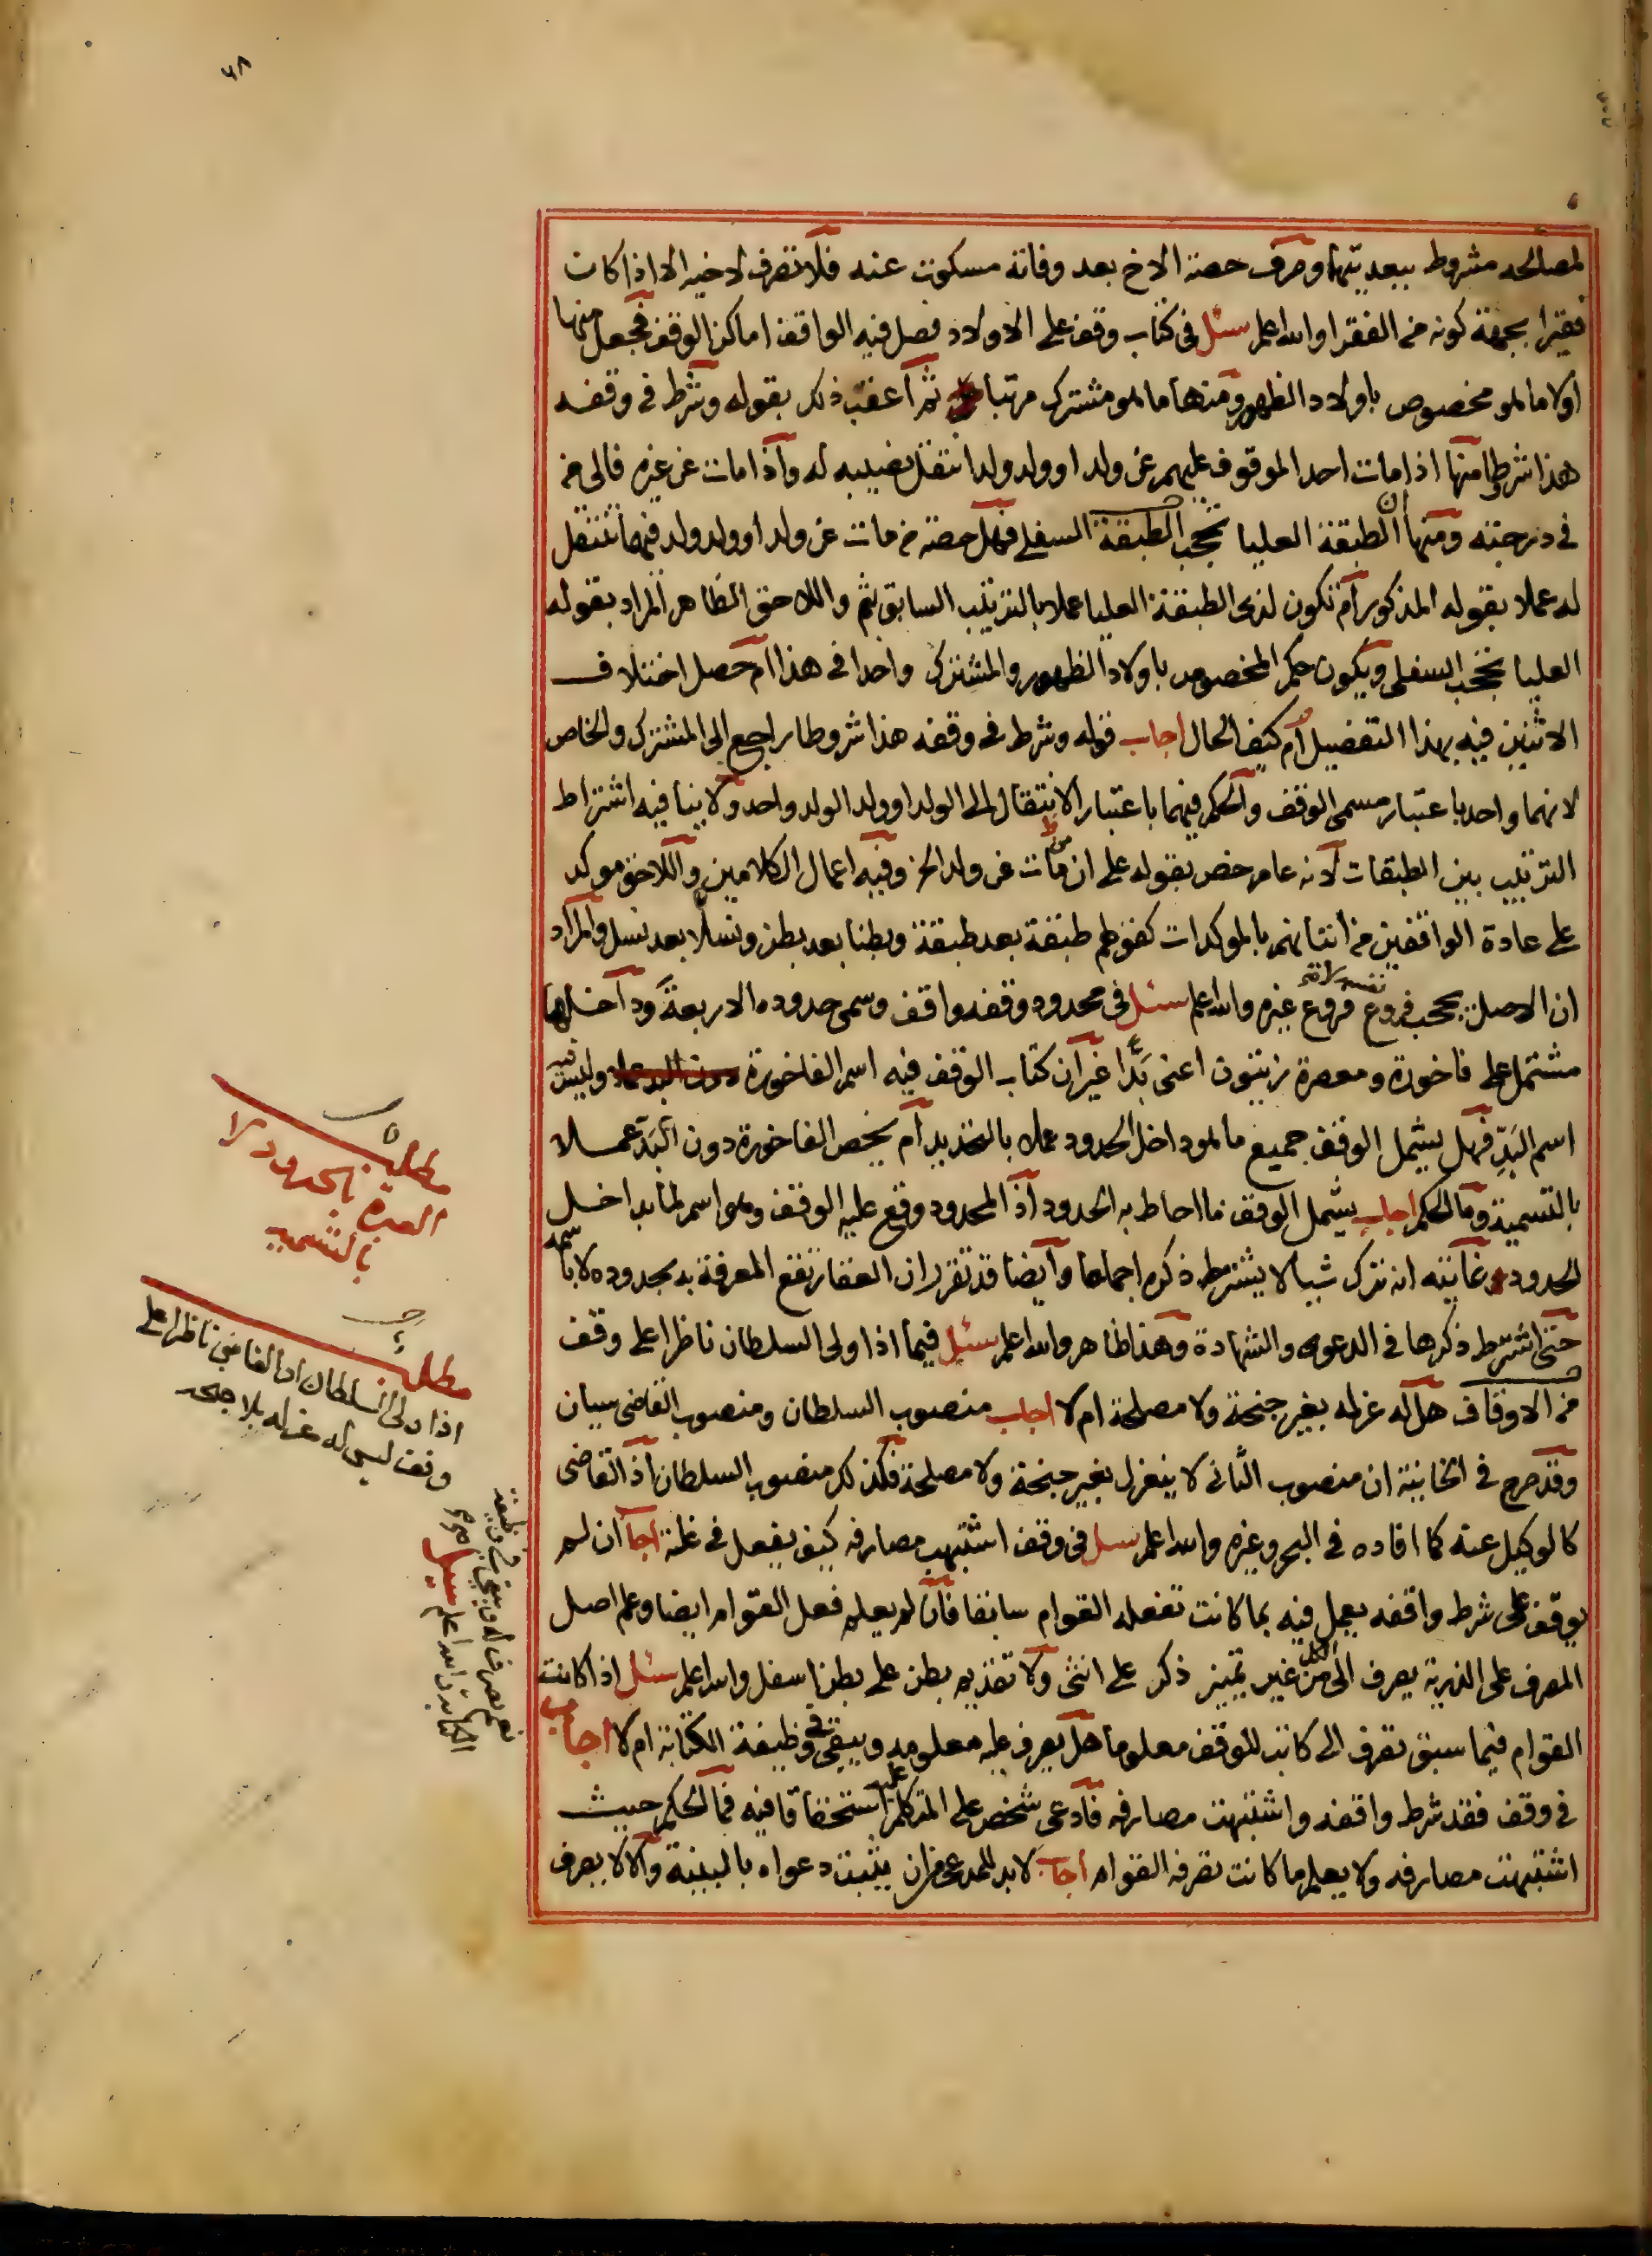 ٦٨
لمصالحه مشروط ببعديتها وصرف حصة الاخ بعد وفاته مسكوت عنه فلا تصرف لاخيه الا اذا كان
فقيرا بجهة كونه من الفقرا والله اعلم سئل فى كتاب وقف على الاولاد فصل فيه الواقف اماكن الوقف فجعل منها
اولا ما هو مخصوص باولاد الظهور ومنها ما هو مشترك مرتبا ثم اعقب ذلك بقوله وشرط فى وقفه
هذا شرطا منها اذا مات احد الموقوف عليهم عن ولد او ولد ولد انتقل نصيبه له واذا مات عن غيره فالى من
فى درجته ومنها ان الطبقة العليا تحجب الطبقة السفلى فهل حصة من مات عن ولد او ولد ولد فيهما تنتقل
له عملا بقوله المذكور ام تكون لذى الطبقة العليا عملا بالترتيب السابق بثم واللاحق الظاهر المراد بقوله
العليا تحجب السفلى ويكون حكم المخصوص باولاد الظهور والمشترك واحدا فى هذا ام حصل اختلاف
الاثنين فيه بهذا التفصيل ام كيف الحال اجاب قوله وشرط فى وقفه هذا شروطا راجع الى المشترك والخاص
لانهما واحد باعتبار مسمى الوقف والحكم فيهما باعتبار الانتقال الى الولد او ولد الولد واحد ولا ينافيه اشتراط
الترتيب بين الطبقات لانه عام خص بقوله على ان من مات عن ولد الخ وفيه اعمال الكلامين واللاحق موكد
على عادة الواقفين من اتيانهم بالموكدات كقولهم طبقة بعد طبقة وبطنا بعد بطن ونسلا بعد نسل والمراد
ان الاصل يحجب فروع نفسه لا فروع غيره والله اعلم سئل فى محدود وقفه واقف وسمى حدوده الاربعة وداخلها
مشتمل على فاخورة ومعصرة زيتون اعنى بَدّا غير ان كتاب الوقف فيه اسم الفاخورة وليس فيه
اسم البَدِّ فهل يشمل الوقف جميع ما هو داخل الحدود عملا بالتحديد ام يخص الفاخورة دون البَدّ عملا
بالتسمية وما الحكم اجاب يشمل الوقف ما احاط به الحدود اذ المحدود وقع عليه الوقف وهو اسم لما بداخل
الحدود وغايته انه ترك شيا لا يشترط ذكره اجماعا وايضا قد تقرر ان العقار تقع المعرفة به بحدوده لا باسمه
حتى اشترط ذكرها فى الدعوى والشهادة وهذا ظاهر والله اعلم سئل فيما اذا ولى السلطان ناظرا على وقف
من الاوقاف هل له عزله بغير جنحة ولا مصلحة ام لا اجاب منصوب السلطان ومنصوب القاضى سيان
وقد صرح فى الخانية ان منصوب الثانى لا ينعزل بغير جنحة ولا مصلحة فكذلك منصوب السلطان اذ القاضى
كالوكيل عنه كما افاده فى البحر وغيره والله اعلم سئل فى وقف اشتبهت مصارفه كيف يفعل فى غلته اجاب ان لم
يوقف على شرط واقفه يعمل فيه بما كانت تفعله القوام سابقا فان لم يعلم فعل القوام ايضا وعلم اصل
المصرف على الذرية يصرف الى الكل من غير تمييز ذكر على انثى ولا تقديم بطن على بطن اسفل والله اعلم سئل اذا كانت
القوام فيما سبق تصرف الى كاتب للوقف معلوما هل يصرف عليه معلومه ويبقى فى وظيفة الكتابة ام لا اجاب
فى وقف فقد شرط واقفه واشتبهت مصارفه فادعى شخص على المتكلم عليه استحقاقا فيه فما الحكم حيث
اشتبهت مصارفه ولا يعلم ما كانت تصرفه القوام اجاب لا بد للمدعى من ان يثبت دعواه بالبينة والا لا يصرف
مطلب
العبرة بالحدود لا
بالتسمية
مطلب
اذا ولى السلطان او القاضى ناظرا على
وقف ليس له عزله بلا جنحه
نعم يصرف له ويبقى فى وظيفة
الكتابة والله اعلم سئل